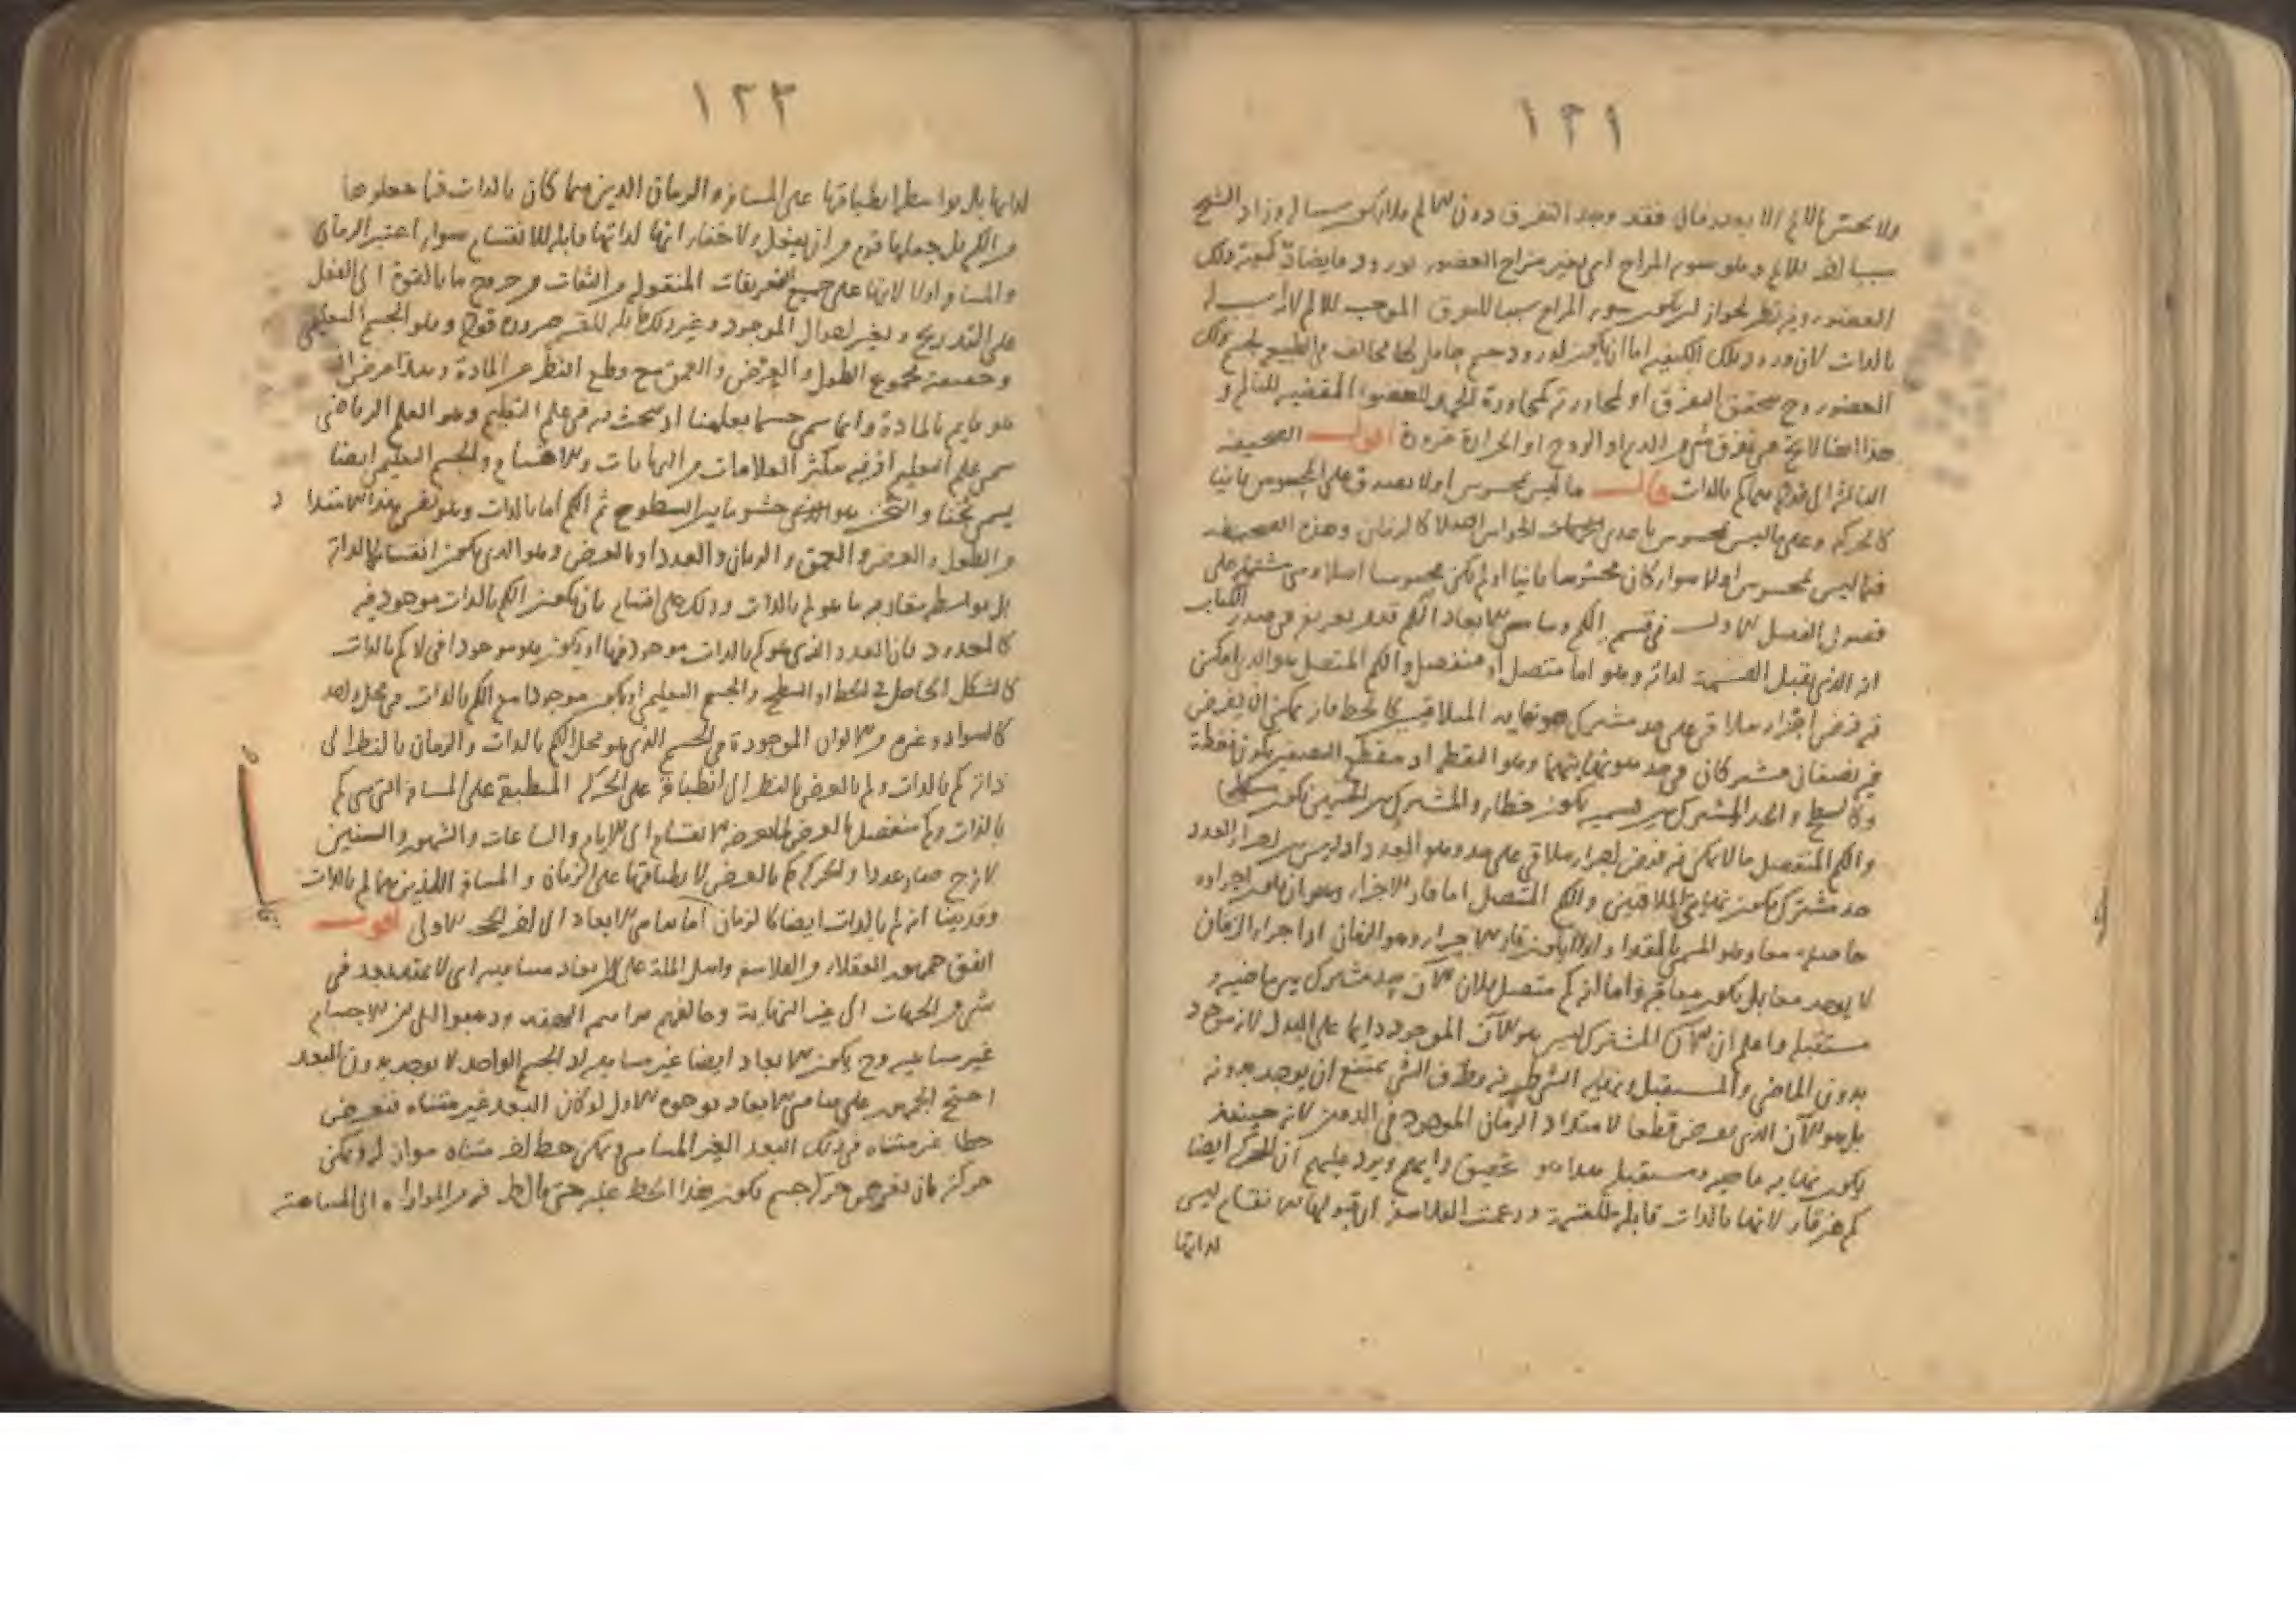 ١٢١
ولا يحس بالألم إلا بعد زمان فقد وجد التفرق دون الألم فلا يكون سببا له وزاد الشيخ
سببا آخر للألم وهو سوء المزاج أي بغير مزاج العضو لورود ما يضاد كيفية ذلك
العضو وفيه نظر لجواز أن يكون سوء المزاج سببا للتفرق الموجب للألم لا أنه سبب له
بالذات لأن ورود تلك الكيفية إما أن يكون لورود جسم حامل لها مخالف في الطبع لجسم ذلك
العضو وح يتحقق التفرق أو لمجاورته كمجاورة للعضو المقتضية للتألم و
هذا أيضا لا يخ عن تفرق شيء من الدم أو الروح أو الحرارة ضرورة أقول الصحيفة
الثالثة بالذات قال ما ليس بمحسوس أولا يصدق على المحسوس ثانيا
كالحركة وعلى ما ليس بمحسوس بإحدى الحواس أصلا كالزمان وهذه الصحيفة
فيما ليس بمحسوس أولا سواء كان محسوسا ثانيا أو لم يكن محسوسا أصلا وهي مشتملة على
فصول الفصل الأول في قسم الكم وتناهي الأبعاد الكم قد مر تعريفه في صدر الكتاب
أنه الذي يقبل القسمة لذاته وهو إما متصل أو منفصل والكم المتصل هو الذي يمكن
فيه فرض أجزاء تتلاقى على حد مشترك هو نهاية المتلاقيين كالخط فإنه يمكن أن يفرض
فيه نصفان مشتركان في حد هو نهايتهما وهو النقطة إذ مقطع النصفين يكون نقطة
وكالسطح والحد المشترك بين قسميه يكون خطا والمشترك بين الجسمين يكون سطحا
والكم المنفصل ما لا يمكن فيه فرض أجزاء تتلاقى على حد وهو العدد إذ ليس بين أجزاء العدد
حد مشترك يكون نهايتي المتلاقيين والكم المتصل إما قار الأجزاء وهو أن يكون أجزاؤه
حاصلة معا وهو المسمى بالمقدار وإما أن لا يكون قار الأجزاء وهو الزمان إذ أجزاء الزمان
لا يوجد معا بل يكون متعاقبة وإما أنه كم متصل فلأن الآن حد مشترك بين ماضيه و
مستقبله واعلم أن الآن المشترك ليس هو الآن الموجود دائما على البدل لأنه موجود
بدون الماضي والمستقبل ونهاية الشيء طرفه وطرف الشيء يمتنع أن يوجد بدونه
بل هو الآن الذي يعرض قطعا لامتداد الزمان الموجود في الذهن لأنه حينئذ
يكون نهاية ماضيه ومستقبله هذا هو تحقيق رأيهم ويرد عليهم أن الحركة أيضا
كم غير قار لأنها بالذات قابلة للقسمة وزعمت الفلاسفة أن قبولها الانقسام ليس
لذاتها
١٢٣
لذاتها بل بواسطة انطباقها على المسافة والزمان الذين هما كان بالذات فما جعلوها
من الكم بل جعلها قوم من أن ينفعل ولا خفاء أنها لذاتها قابلة للانقسام سواء اعتبر الزمان
والمسافة أولا لأنها على جميع التعريفات المنقولة من الثقات من خروج ما بالقوة إلى الفعل
على التدريج وتغير أحوال الموجود وغير ذلك قابلة للقسمة ضرورة قوله وهو الجسم التعليمي
وحقيقته مجموع الطول والعرض والعمق مع قطع النظر عن المادة وهذا عرض
هو قائم بالمادة وإنما سمي جسما تعليميا إذ يبحث عنه في علم التعليم وهو العلم الرياضي
سمي علم التعليم إذ فيه يكثر العلامات من النهايات والأقسام والجسم التعليمي أيضا
يسمى ثخنا والثخن هو الذي حشو ما بين السطوح ثم الكم إما بالذات وهو نفس هذا الامتداد
من الطول والعرض والعمق والزمان والعدد أو بالعرض وهو الذي يكون انقسامه لا لذاته
بل بواسطة مقارنة ما هو كم بالذات وذلك على أقسام بأن يكون الكم بالذات موجودا فيه
كالمعدود فإن العدد الذي هو كم بالذات موجود فيها أو يكون هو موجودا في الكم بالذات
كالشكل الحاصل في الخط أو السطح والجسم التعليمي أو يكون موجودا مع الكم بالذات في محل واحد
كالسواد وغيره من الألوان الموجودة في الجسم الذي هو محل الكم بالذات والزمان بالنظر إلى
ذاته كم بالذات وكم بالعرض بالنظر إلى انطباقه على الحركة المنطبقة على المسافة التي هي كم
بالذات وكم منفصل بالعرض لما يعرضه الانقسام إلى الأيام والساعات والشهور والسنين
لأنه ح صار عددا والحركة كم بالعرض لانطباقها على الزمان والمسافة اللذين هما كم بالذات
وقد بينا أنه كم بالذات أيضا كالزمان أما تناهي الأبعاد إلى آخر الحجة الأولى أقول
اتفق جمهور العقلاء والفلاسفة وأهل الملة على أن الأبعاد متناهية أي لا تمتد بعد في
شيء من الجهات إلى غير النهاية وخالفهم براهمة الهند وذهبوا إلى أن الأجسام
غير متناهية وح يكون الأبعاد أيضا غير متناهية إذ الجسم الواحد لا يوجد بدون البعد
احتج الجمهور على تناهي الأبعاد بوجوه الأول لو كان البعد غير متناه فنفرض
خطا غير متناه في ذلك البعد الغير المتناهي ويمكن خط آخر متناه مواز له ويمكن
حركته بأن نفرض حركة جسم يكون هذا الخط عليه حتى مال الخط من الموازاة إلى المسامتة